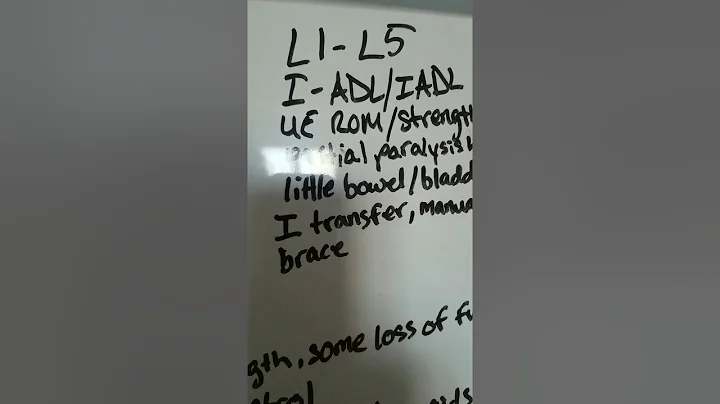 L1-L5
I-ADL/IADL
UE ROM/strengt
partial paralysis
little bowel/bladd
I transfer, manua
brace
gth, some loss of fu